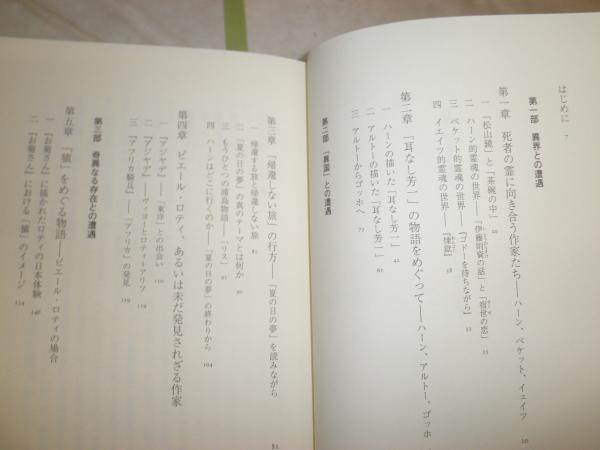 はじめに 7
第一部 異界との遭遇
第一章 死者の霊に向き合う作家たち——ハーン、ベケット、イェイツ 10
一 「松山鏡」と「茶碗の中」
二 ハーン的霊魂の世界——「伊藤則資の話」と「宿世の恋」 15
三 ベケット的霊魂の世界——『ゴドーを待ちながら』
四 イェイツ的霊魂の世界——『煉獄』 38
第二章 「耳なし芳一」の物語をめぐって——ハーン、アルトー、ゴッホ
一 ハーンの描いた「耳なし芳一」 42
二 アルトーの描いた「耳なし芳一」 61
三 アルトーからゴッホへ 77
第二部 「異国」との遭遇
第三章 「帰還しない旅」の行方——「夏の日の夢」を読みながら 81
一 帰還する旅と帰還しない旅 81
二 「夏の日の夢」の真のテーマとは何か 90
三 もうひとつの浦島物語——「リス」
四 ハーンはどこに行くのか——「夏の日の夢」の終わりから 104
第四章 ピエール・ロティ、あるいは未だ発見されざる作家
一 『アジヤデ』——「東洋」との出会い 110
二 『アジヤデ』——ヴィヨーとロティ=アリフ 119
三 『アフリカ騎兵』——「アフリカ」の発見 129
第三部 奇異なる存在との遭遇
第五章 「猿」をめぐる物語——ピエール・ロティの場合
一 『お菊さん』に描かれたロティの日本体験 146
二 『お菊さん』における「猿」のイメージ 154